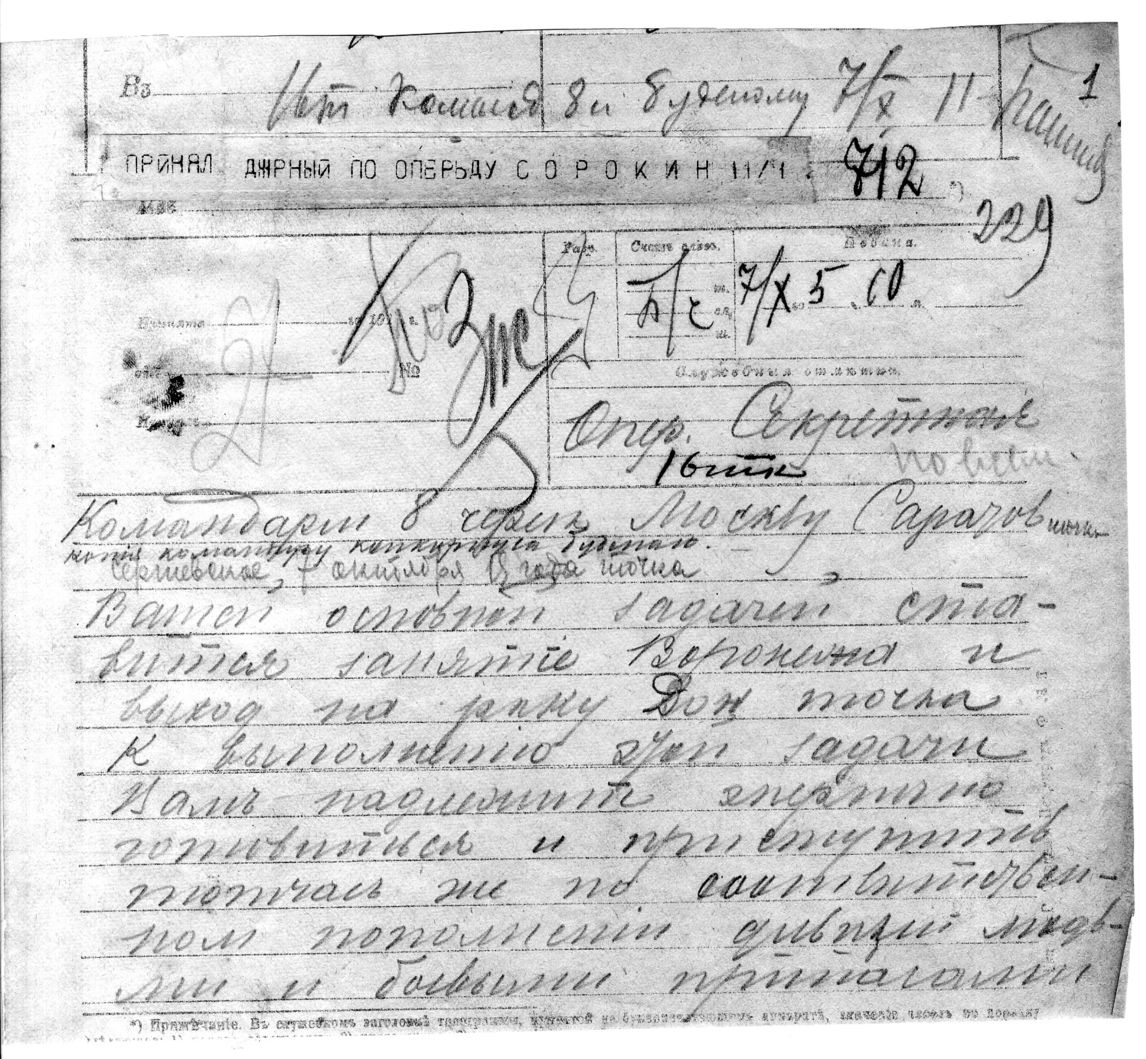 Въ
Команд 8и Буденому 7/X 11
1
ПРИНЯЛ ДЖРНЫЙ ПО ОПЕРЬДУ С О Р О К И Н 11/1
712
229
Разр. Счетъ словъ. Подана.
Б/ч 7/X 5 60
Принята
№
Служебныя отмѣтки.
Опер. Секретная
Командарм 8 через Москву Саратов точка
копия командиру конкорпуса Буденаю.
Сергиевское, 7 октября 19 года точка
Вашей основной задачей ста-
вится занятие Воронежа и
выход на реку Дон точка
К выполнению этой задачи
Вамъ надлежит энергично
готовиться и приступить
тотчас же по соответствен-
ном пополнении дивизий людь-
ми и боевыми припасами
*) Примѣчаніе. Въ служебномъ заголовкѣ телеграммы,